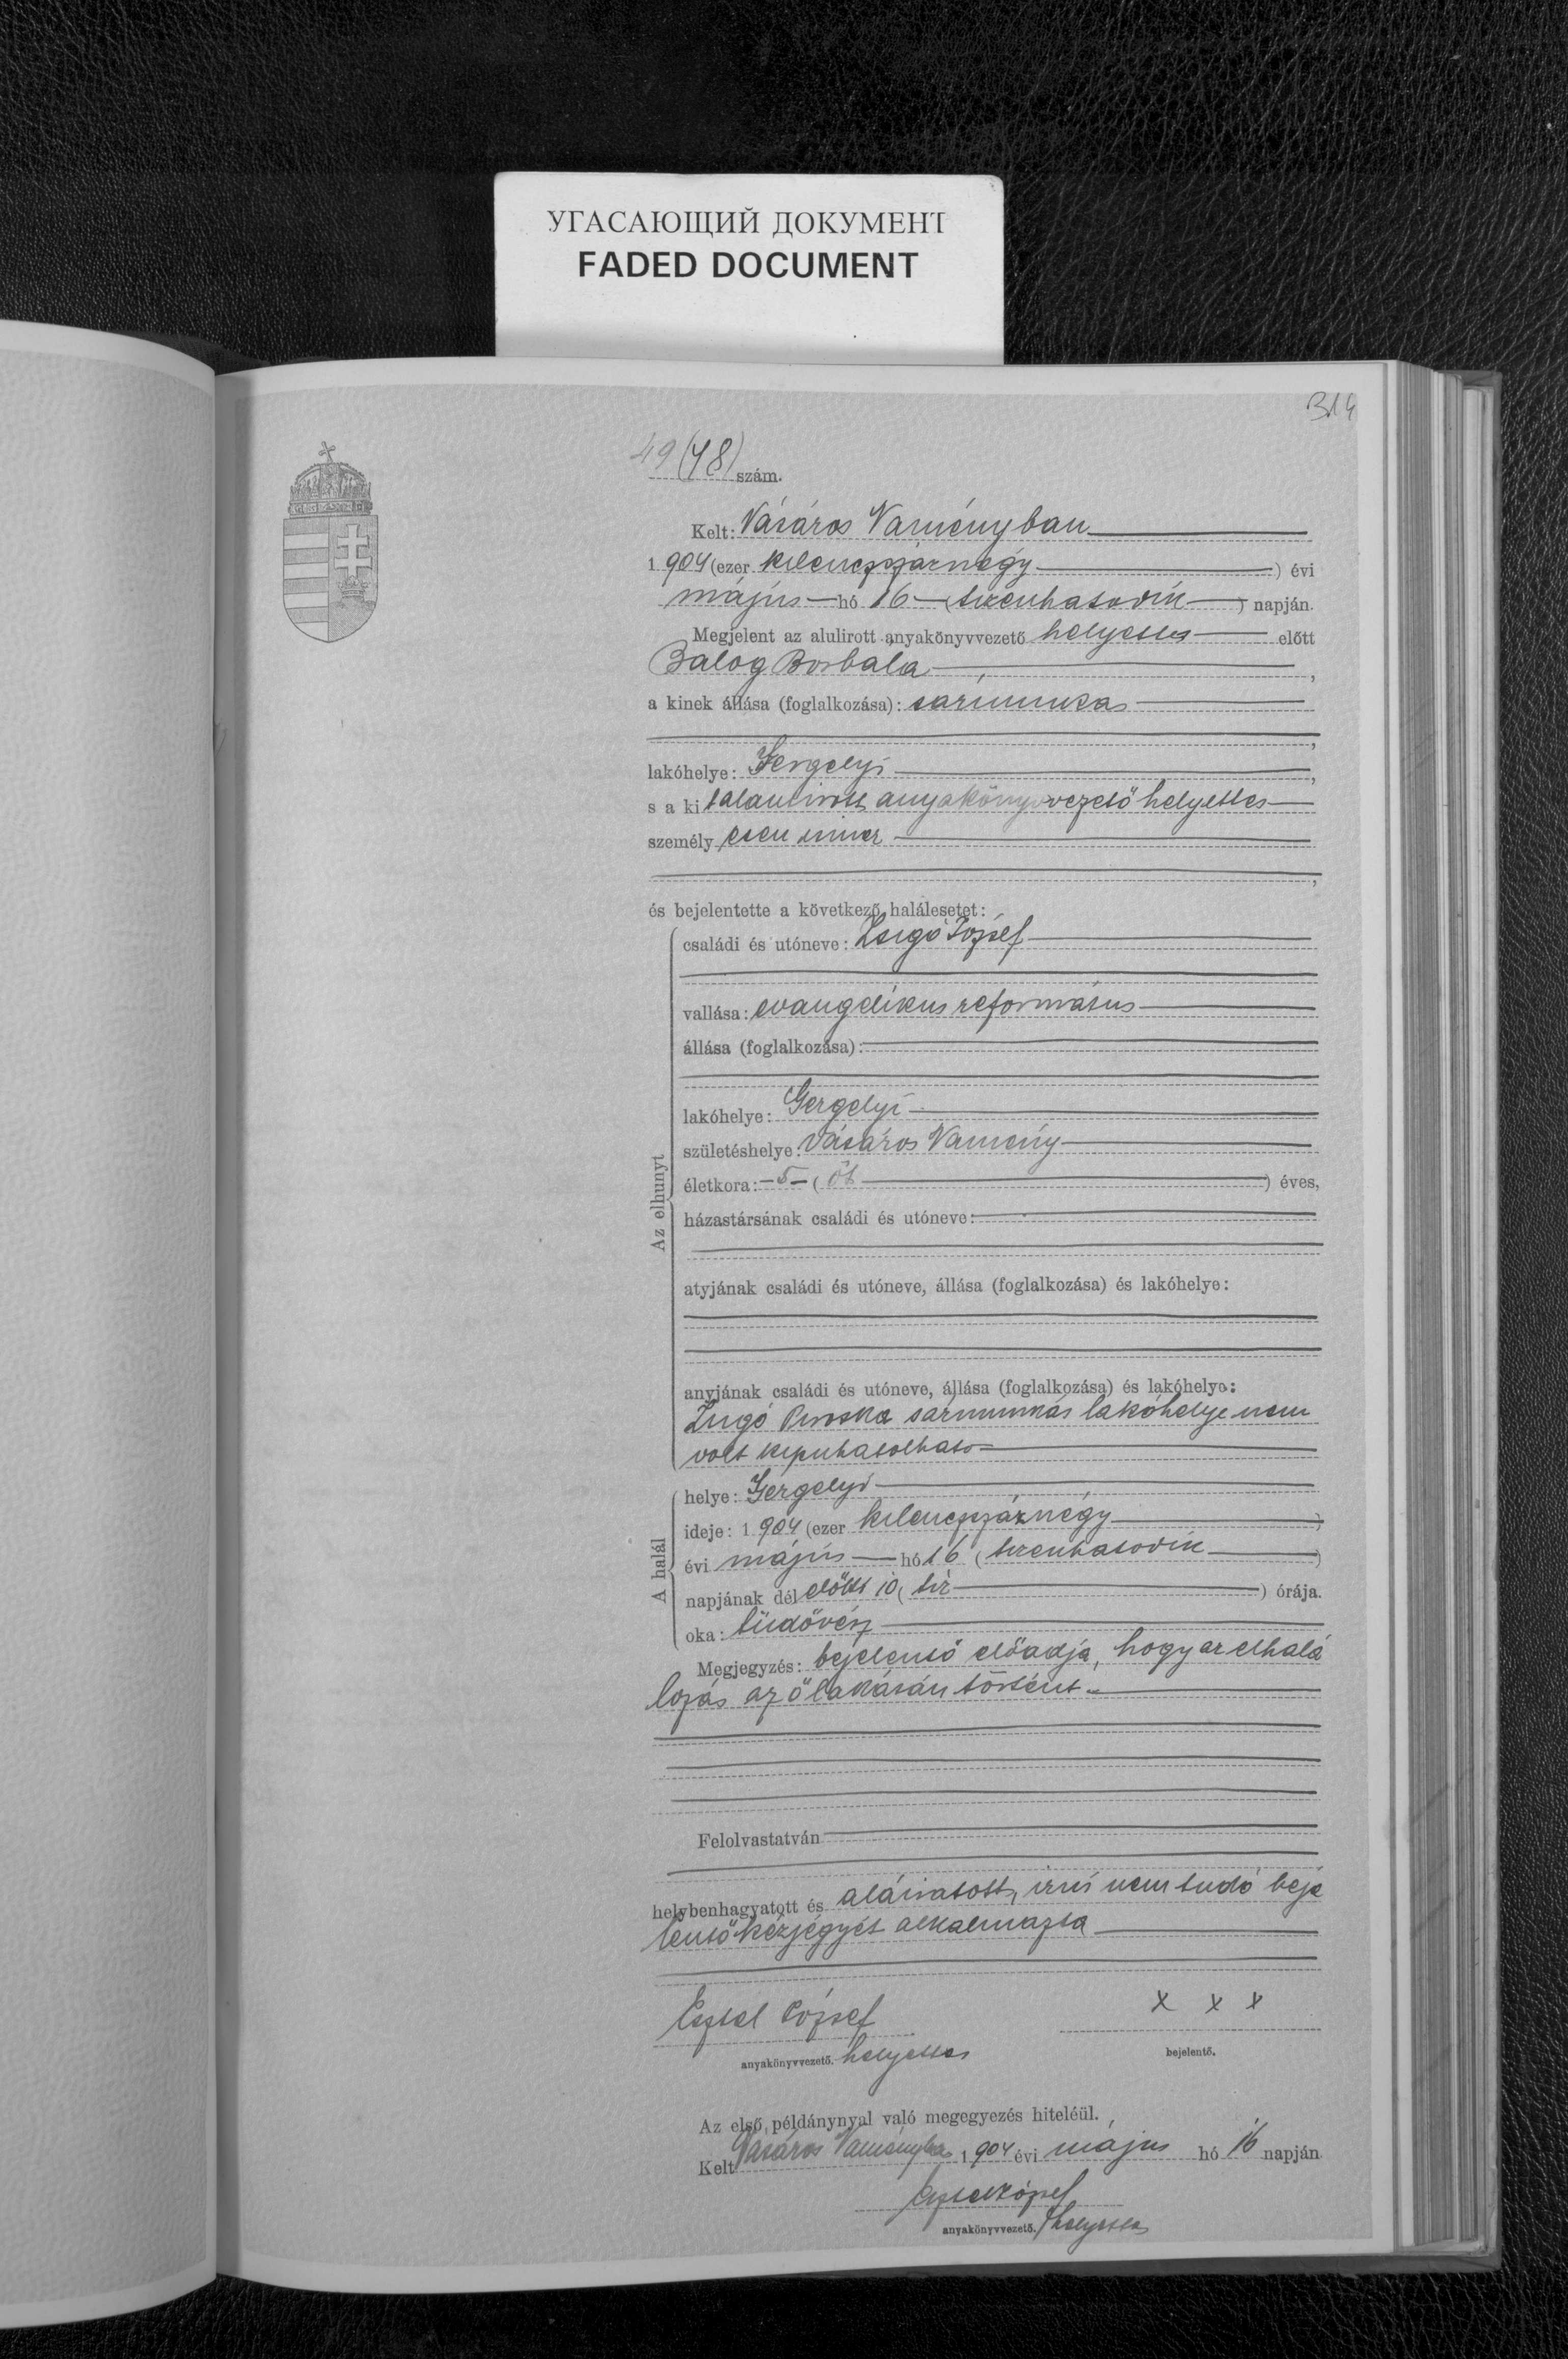 УГАСАЮЩИЙ ДОКУМЕНТ
FADED DOCUMENT
314
49 (48) szám.
Kelt: Vásáros Naményban
1 904 (ezer kilenczszáznégy ) évi
május hó 16 (tizenhatodik ) napján.
Megjelent az alulirott anyakönyvvezető helyettes előtt
Balog Borbála ,
a kinek állása (foglalkozása): sármunkás
,
lakóhelye: Gergelyi ,
s a ki alantirott anyakönyvvezető helyettes
személyesen ismer
,
és bejelentette a következő halálesetet:
Az elhunyt
családi és utóneve: Zsigó József
vallása: evangelikus református
állása (foglalkozása):
lakóhelye: Gergelyi
születéshelye: Vásáros Namény
életkora: – 5 – ( öt ) éves,
házastársának családi és utóneve:
atyjának családi és utóneve, állása (foglalkozása) és lakóhelye:
anyjának családi és utóneve, állása (foglalkozása) és lakóhelye:
Zsigó Piroska sármunkás lakóhelye nem
volt kipuhatolható
A halál
helye: Gergelyi
ideje: 1 904 (ezer kilenczszáznégy )
évi május hó 16 ( tizenhatodik )
napjának dél előtt 10 ( tíz ) órája.
oka: tüdővész
Megjegyzés: bejelentő előadja, hogy az elhalá
lozás az ő lakásán történt.
Felolvastatván
helybenhagyatott és aláiratott, irni nem tudó beje
lentő kézjégyét alkalmazta
Esztel József x x x
anyakönyvvezető. helyettes bejelentő.
Az első példánynyal való megegyezés hiteléül.
Kelt Vásáros Naményban 1 904 évi május hó 16 napján
Esztel József
anyakönyvvezető. helyettes